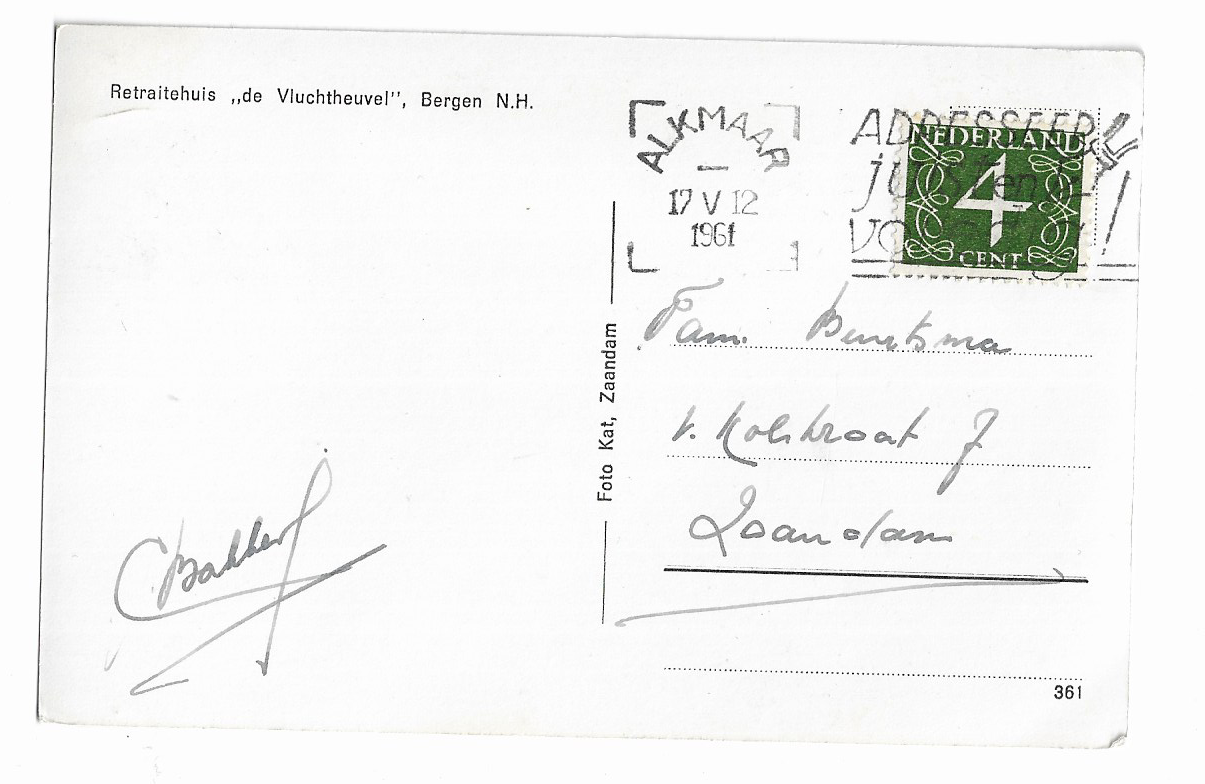 Retraitehuis „de Vluchtheuvel", Bergen N.H.
ALKMAAR
17 V 12
1961
ADRESSEER
juist en
NEDERLAND
4
CENT
Foto Kat, Zaandam
Fam.
Zaandam
C Bakker
361